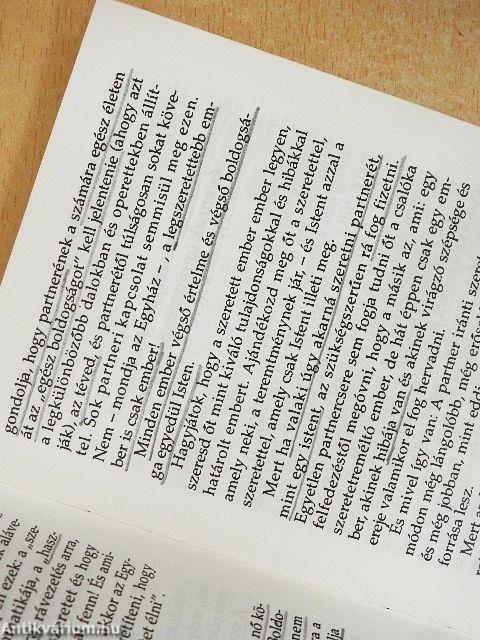 gondolja, hogy partnerének a számára egész életen
át az „egész boldogságot” kell jelentenie (ahogy azt
a legkülönbözőbb dalokban és operettekben állít-
ják), az téved, és partnerétől túlságosan sokat köve-
tel. Sok partneri kapcsolat semmisül meg ezen.
Nem – mondja az Egyház –, a legszeretettebb em-
ber is csak ember!
Minden ember végső értelme és végső boldogsá-
ga egyedül Isten.
Hagyjátok, hogy a szeretett ember ember legyen,
szeresd őt mint kiváló tulajdonságokkal és hibákkal
határolt embert. Ajándékozd meg őt a szeretettel,
amely neki, a teremtménynek jár, – és Istent azzal a
szeretettel, amely csak Istent illeti meg.
Mert ha valaki úgy akarná szeretni partnerét,
mint egy istent, az szükségszerűen rá fog fizetni.
Egyetlen partnercsere sem fogja tudni őt a csalóka
felfedezéstől megóvni, hogy a másik az, ami: egy
szeretetreméltó ember, de hát éppen csak egy em-
ber, akinek hibája van és akinek virágzó szépsége és
ereje valamikor el fog hervadni.
És mivel így van: A partner iránti szeret
módon még lángolóbb, még erős
és még jobban, mint eddi
forrása lesz.
Mert az
k aláve-
n ezek: a „sze-
tikája, a „hasz
rávezetés arra,
retet és hogy
fenn! És ami-
kor az Egy-
etíteni, hogy
t élni”.
nő kö-
boldo-
m a
Antikvárium.hu